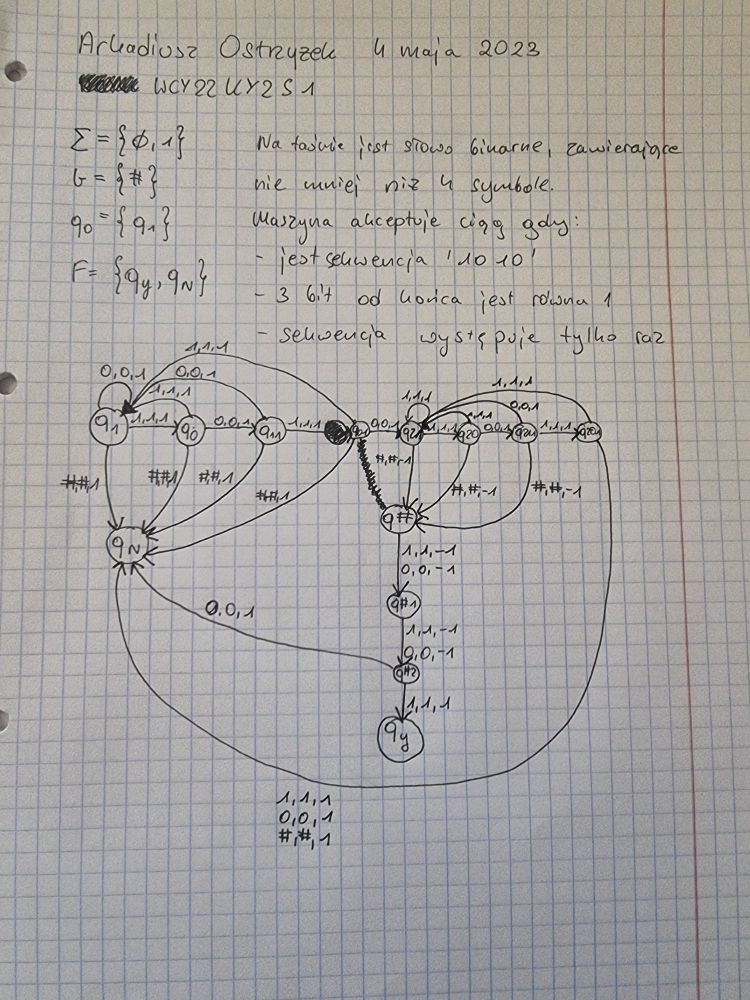 Arkadiusz Ostrzyżek 4 maja 2023
WCY22KY2S1
Σ = {ϕ,1} Na taśmie jest słowo binarne, zawierające
G = {#} nie mniej niż 4 symbole.
q0 = {q1} Maszyna akceptuje ciąg gdy:
F = {qy, qN} - jest sekwencja '1010'
- 3 bit od końca jest równa 1
- sekwencja występuje tylko raz
1,1,1
0,0,1 0,0,1 1,1,1 1,1,1
1,1,1 0,0,1
q1 1,1,1 q0 0,0,1 q11 1,1,1 0,0,1 1,1,1 q20 0,0,1 1,1,1
#,#,1 #,#,1 #,#,1 #,#,1 #,#,-1 #,#,-1 #,#,-1
q#
qN
1,1,-1
0,0,-1
q#1
0,0,1
1,1,-1
0,0,-1
q#2
1,1,1
qy
1,1,1
0,0,1
#,#,1